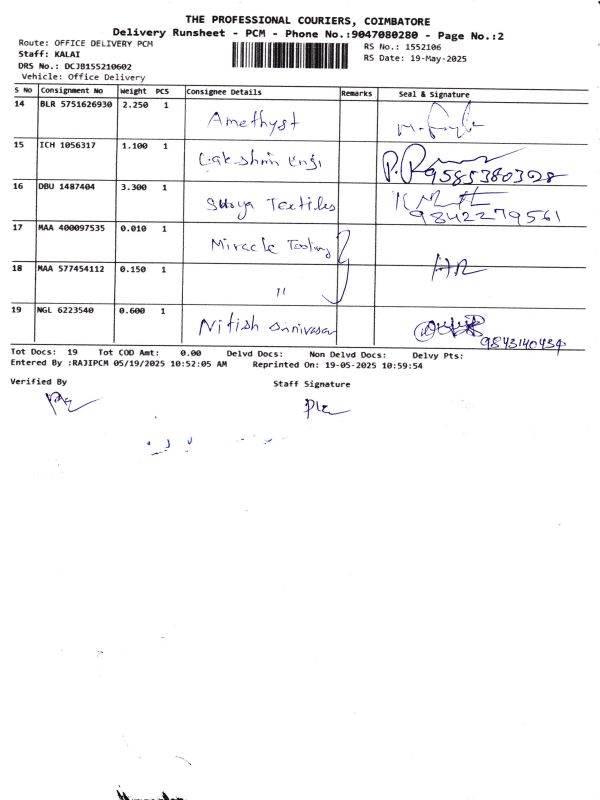 THE PROFESSIONAL COURIERS, COIMBATORE
Delivery Runsheet - PCM - Phone No.:9047080280 - Page No.:2
Route: OFFICE DELIVERY PCM
RS No.: 1552106
Staff: KALAI
RS Date: 19-May-2025
DRS No.: DCJB155210602
Vehicle: Office Delivery
S No Consignment No Weight PCS Consignee Details Remarks Seal & Signature
14 BLR 5751626930 2.250 1 Amethyst
15 ICH 1056317 1.100 1 Lakshmi Engi 9585380328
16 DBU 1487404 3.300 1 Surya Textiles 9842279561
17 MAA 400097535 0.010 1 Miracle Tooling
18 MAA 577454112 0.150 1 "
19 NGL 6223540 0.600 1 Nitish Srinivasan 9843140434
Tot Docs: 19 Tot COD Amt: 0.00 Delvd Docs: Non Delvd Docs: Delvy Pts:
Entered By :RAJIPCM 05/19/2025 10:52:05 AM Reprinted On: 19-05-2025 10:59:54
Verified By Staff Signature